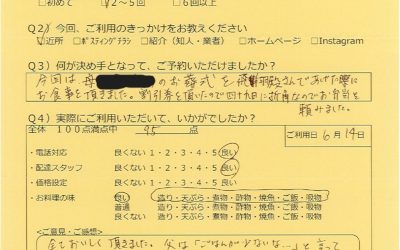 □初めて ☑2～5回 □6回以上
Q2）今回、ご利用のきっかけをお教えください
☑近所 □ポスティングチラシ □紹介（知人・業者） □ホームページ □Instagram
Q3）何が決め手となって、ご予約いただけましたか？
今回は母 のお葬式を さんであげた際に
お食事を頂きました。割引券を頂いたので四十九日に折角なのでお弁当を
頼みました。
Q4）実際にご利用いただいて、いかがでしたか？
全体 100点満点中 95 点
ご利用日 6月19日
・電話対応 良くない 1・2・3・4・5 良い
・配達スタッフ 良くない 1・2・3・4・5 良い
・価格設定 良くない 1・2・3・4・5 良い
・お料理の味 良い 造り・天ぷら・煮物・酢物・焼魚・ご飯・吸物
普通 造り・天ぷら・煮物・酢物・焼魚・ご飯・吸物
良くない 造り・天ぷら・煮物・酢物・焼魚・ご飯・吸物
＜ご意見・ご感想＞
全ておいしく頂きました。父は「ごはんが少ないな…」と言って